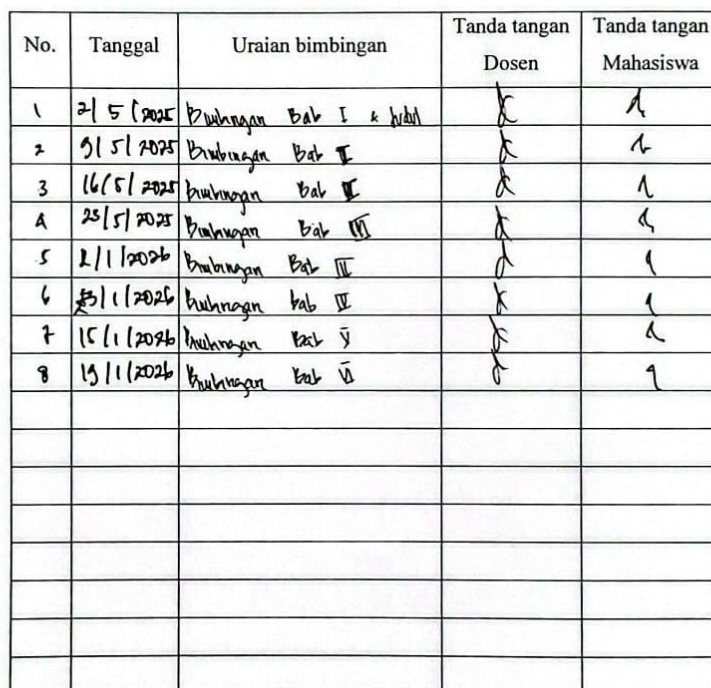 No. Tanggal Uraian bimbingan Tanda tangan Dosen Tanda tangan Mahasiswa
1 2/5/2025 Bimbingan Bab I & Judul
2 9/5/2025 Bimbingan Bab II
3 16/5/2025 Bimbingan Bab II
4 23/5/2025 Bimbingan Bab III
5 2/1/2026 Bimbingan Bab
6 /1/2026 Bimbingan bab IV
7 15/1/2026 Bimbingan Bab V
8 19/1/2026 Bimbingan Bab VI